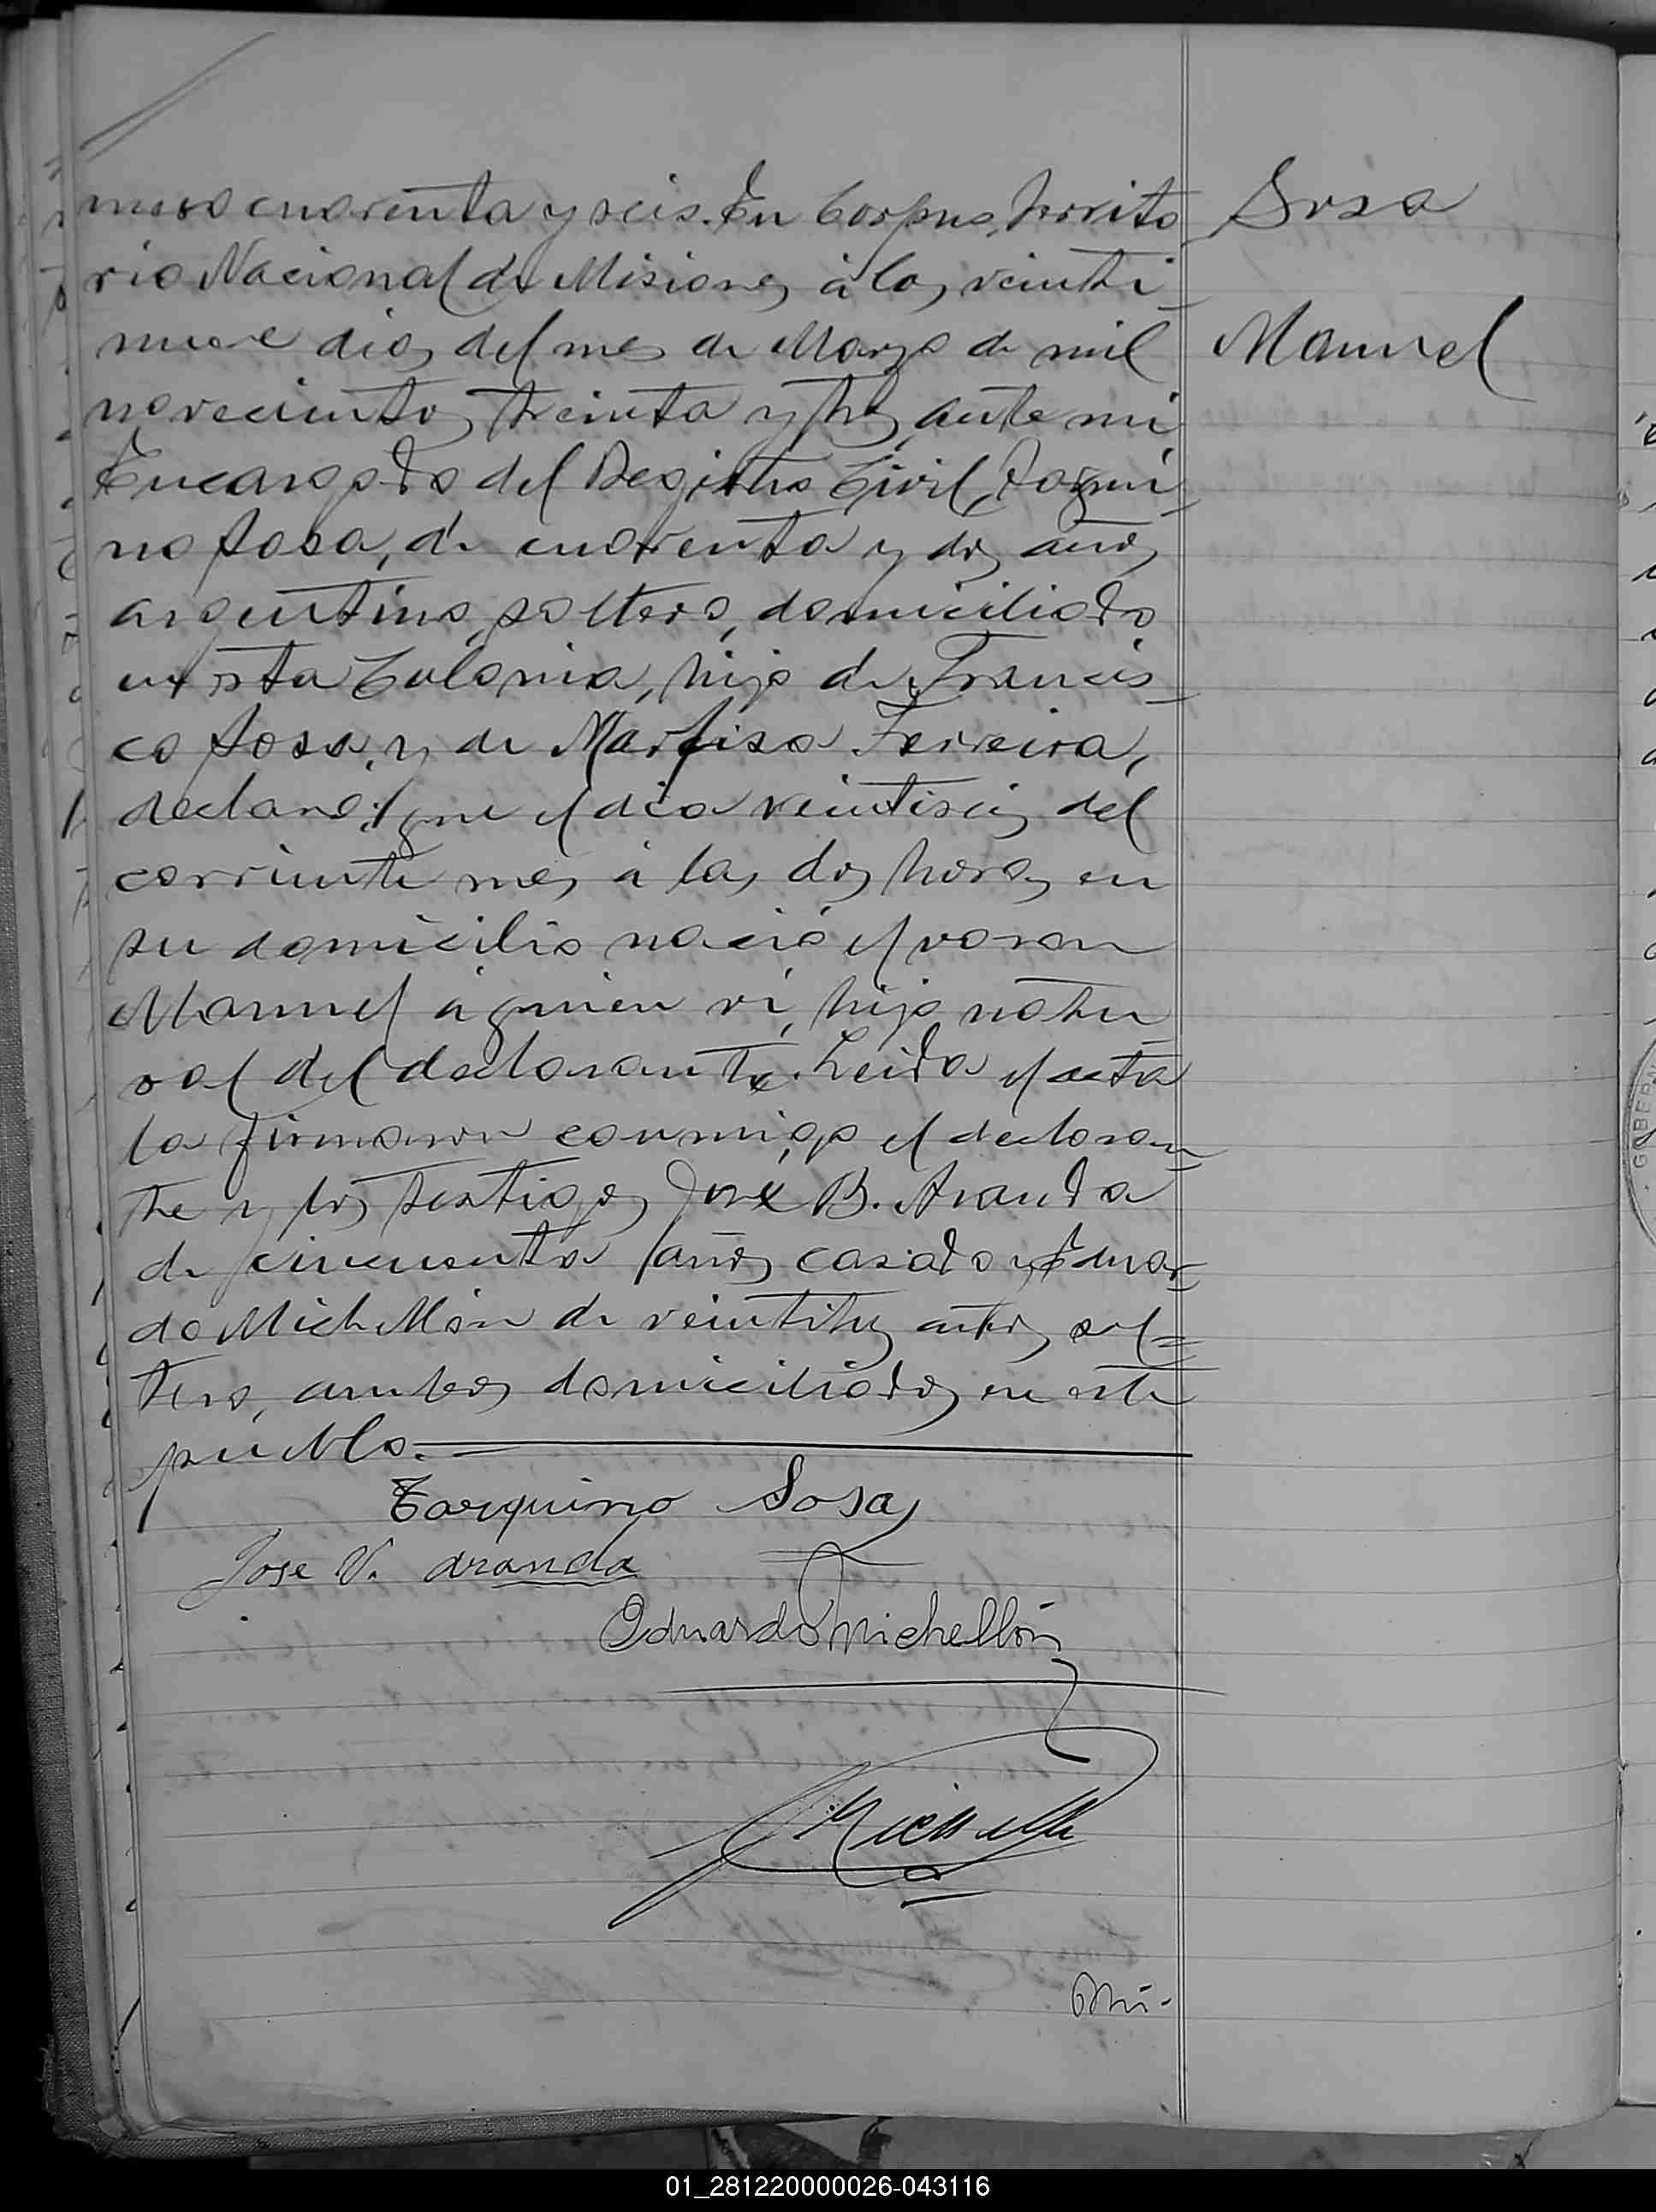 mero cuarenta y seis. En Corpus, Territo
Sosa
rio Nacional de Misiones, a los veinti
nueve dias del mes de Marzo de mil
Manuel
novecientos treinta y tres, ante mi
Encargado del Registro Civil, Tarqui
no Sosa, de cuarenta y dos años
argentino, soltero, domiciliado
en esta Colonia, hijo de Francis
co Sosa, y de Marfisa Ferreira,
declaró: que el dia veintiseis del
corriente mes á las dos horas en
su domicilio nació el varon
Manuel á quien ví, hijo natu
ral del declarante. Leida el acta
la firmaron conmigo el declaran
te y los testigos José B. Aranda
de cincuenta años casado y Eduar
do Michellón de veintitres años, sol=
tero, ambos domiciliados en este
pueblo.
Tarquino Sosa
Jose V. Aranda
Eduardo Michellón
Nú-
GOBERN
01_281220000026-043116